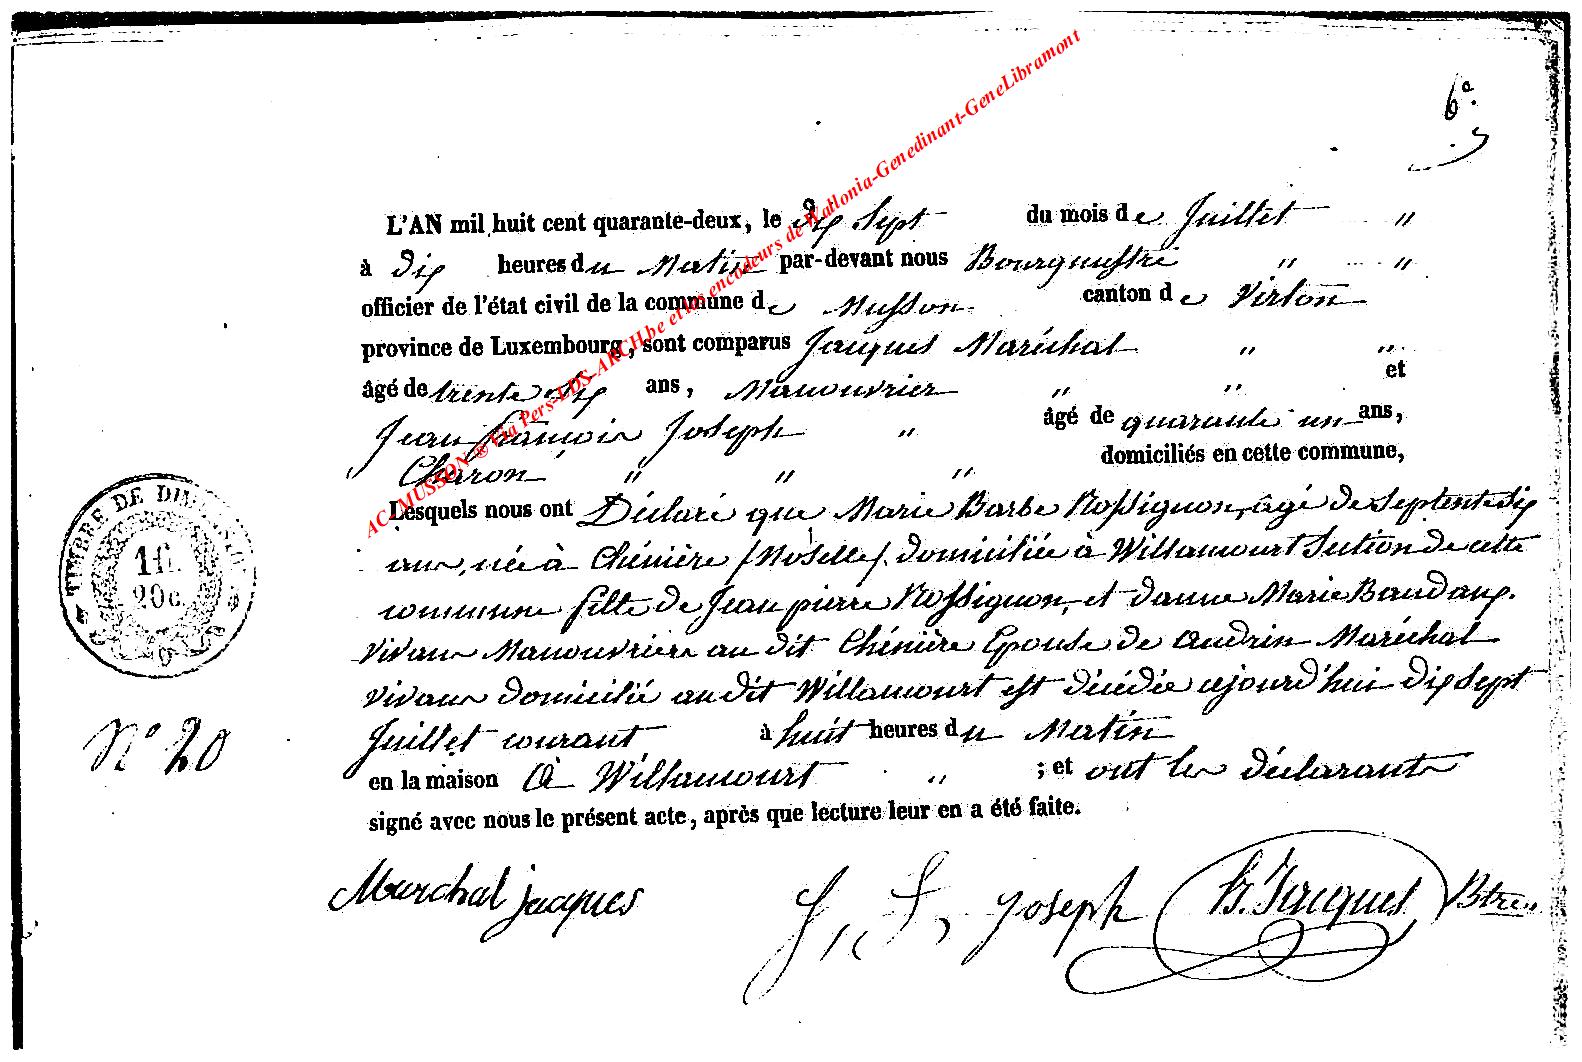 6e.
L'AN mil huit cent quarante-deux, le dix Sept du mois de Juillet "
à dix heures du Matin par-devant nous Bourgmestre " "
officier de l'état civil de la commune de Musson canton de Virton
province de Luxembourg, sont comparus Jacques Maréchal " "
âgé de trente six ans, Manouvrier " " et
Jean françois Joseph " âgé de quarante un ans,
Charon " " " domiciliés en cette commune,
Lesquels nous ont Déclaré que Marie Barbe Rossignon, âgé de Septente Six
ans, née à Chénière /Moselle/. domiciliée à Willancourt Section de cette
commune fille de Jean pierre Rossignon, et d'anne Marie Baudaux.
vivans Manouvriers au dit Chénière Epouse de Audrin Maréchal
vivans domicilié au dit Willancourt est décédée aujourd'hui dix Sept
Juillet courant à huit heures du Matin
en la maison à Willancourt " ; et ont les déclarants
signé avec nous le présent acte, après que lecture leur en a été faite.
TIMBRE DE
1 fl.
20 c.
N° 20
Marchal jacques
J. f. Joseph
H. Jacques Btre
AC-MUSSON ® Via Pers-LDS-ARCH.be et les encodeurs de Wallonia-Genedinant-GeneLibramont